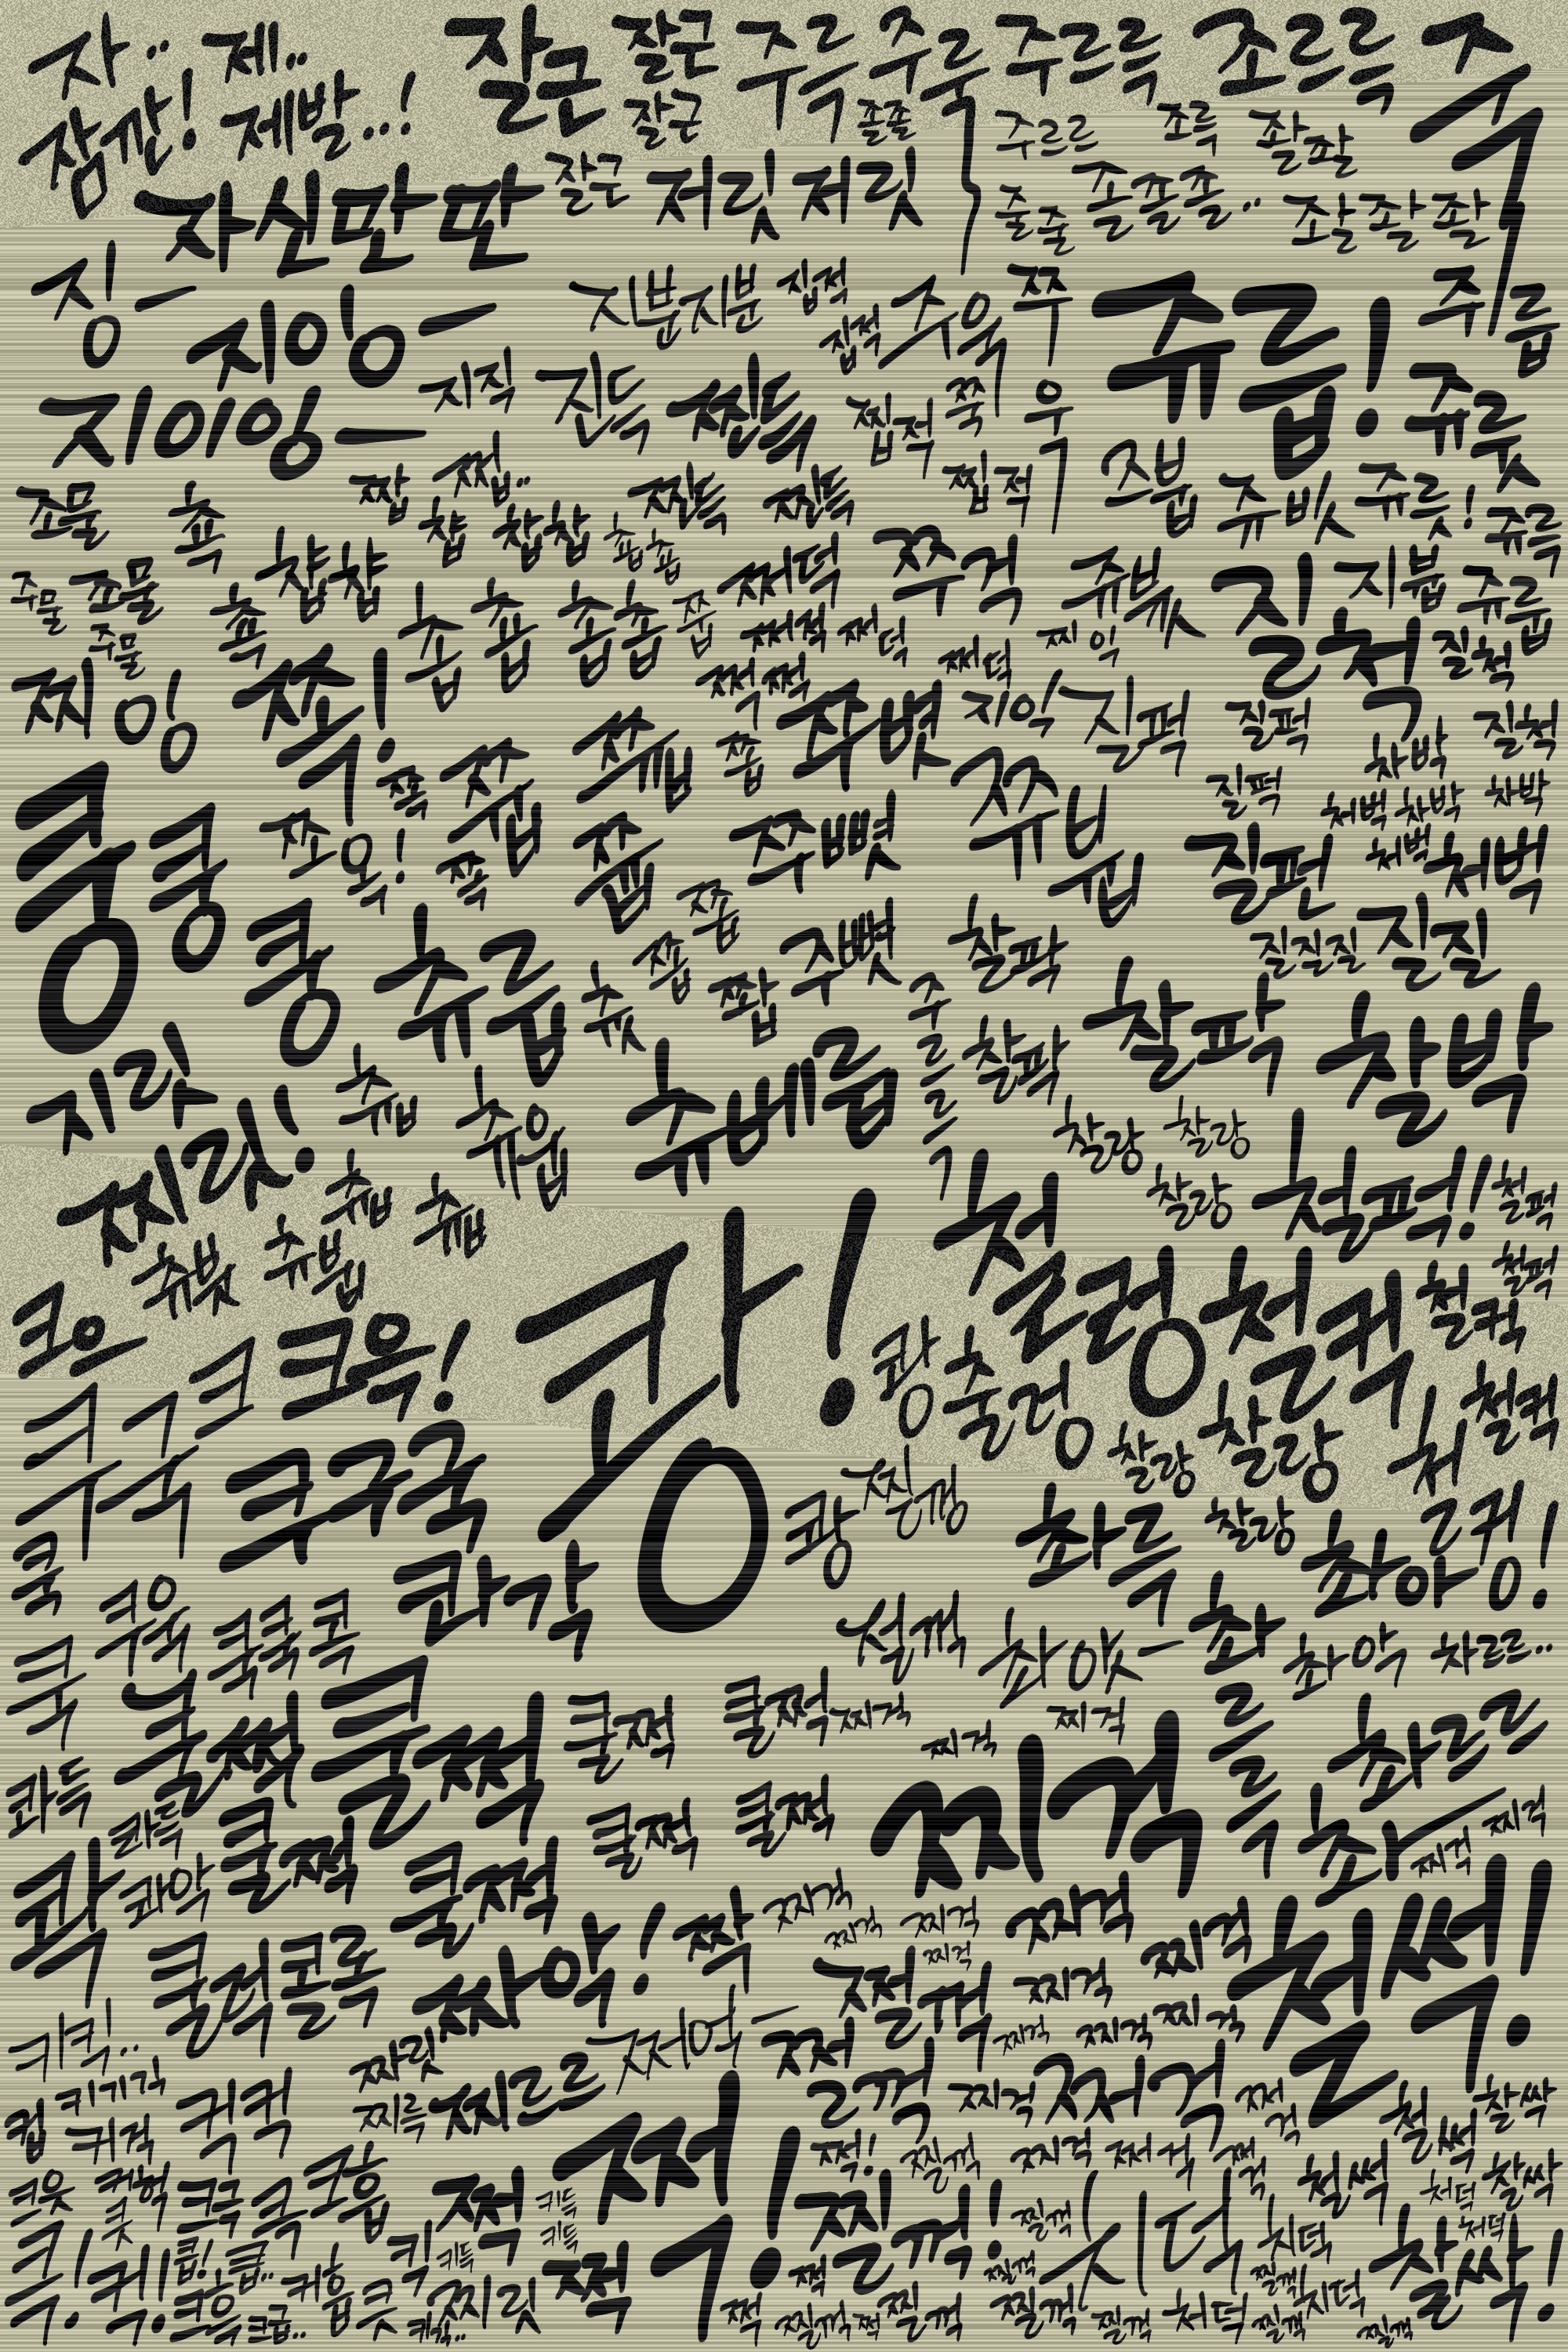 자.. 제.. 잘근 잘근 주륵 주룩 주르륵 조르륵 주욱
잠깐! 제발...! 잘근 졸졸 주르르 조륵 좔좔
자신만만 잘근 저릿 저릿 줄줄 졸졸졸.. 좔좔좔
징— 지잉— 지분지분 집적 집적 주욱 쭈우욱 쥬릅! 쥐릅
지이잉— 지직 진득 찐득 찝적 쭉 쥬릇
조물 쵹 짭 쩝.. 찐득 찐득 찝적 즈붑 쥬빗 쥬릇! 쥬륵
주물 조물 챱챱 챱 찹찹 춉춉 쩌덕 쭈걱 쥬븃 질척 지붑 쥬릅
주물 쵹 춉 춉 춉춉 쭙 쩌적 쩌덕 쩌덕 찌익 질척
찌잉 쪽! 쩍쩍 쭈뼛 지익 질퍽 질퍽 질척
쿵 쿵 쪽 쭙 쯉 쫍 차박 질퍽 처벅 차박 차박
쪼옥! 쪽 쭙 쭈뼛 쥬븝 질펀 처벅 처벅
쿵 츄릅 츗 쫍 쭙 쫩 주뼛 찰팍 질질질 질질
지릿 츄릅 츄웁 츄베릅 주르륵 찰팍 찰팍 찰박
찌릿! 찰랑 찰랑 찰랑 철퍽! 철퍽
츄븃 츄븝 쾅! 철렁 철컥 철컥 철퍽
크으 크크크 크윽! 쾅 출렁 찰랑 찰랑 철컥
쿠구국 쾅 찐겅 촤륵 찰랑 촤아! 철컹!
쿡 쿠욱 쿡쿡콕 콰각 쩔꺽 촤앗— 촤르륵 촤악 차르르..
쿡 쿨쩍 쿨쩍 쿨쩍 쿨쩍 찌걱 찌걱 찌걱 촤르르
콰득 콰득 쿨쩍 쿨쩍 찌걱 촤— 찌걱 찌걱
콱 콰악 쿨쩍 쿨쩍 짝 짜걱 찌걱 찌걱 짜걱 찌걱 철썩!
쿨럭 콜록 짜악! 쩔꺽 찌걱 찌걱
키킥.. 짜릿 쩌억— 쩔꺽 찌걱 찌걱 찌걱
킵 키기긱 퀴걱 퀵컥 찌륵 찌르르 찌걱 쩌걱 쩌걱 철썩 찰싹
크읏 커헉 크극 큭 크흡 쩍 쩍! 쩍! 찔꺽 찌걱 쩌걱 쩌걱 철썩 찰싹
큿 키득 키득 찔꺽! 찔꺽 치덕 처덕
큭! 퀵! 큽! 큽.. 킥 키득 쩍 쩍 찔꺽 치덕 처덕 찰싹!
크흑 크급.. 커흡 큿 키긱.. 찌릿 쩍 찔꺽 쩍 찔꺽 찔꺽 찔꺽 처덕 찔꺽 치덕 찔꺽